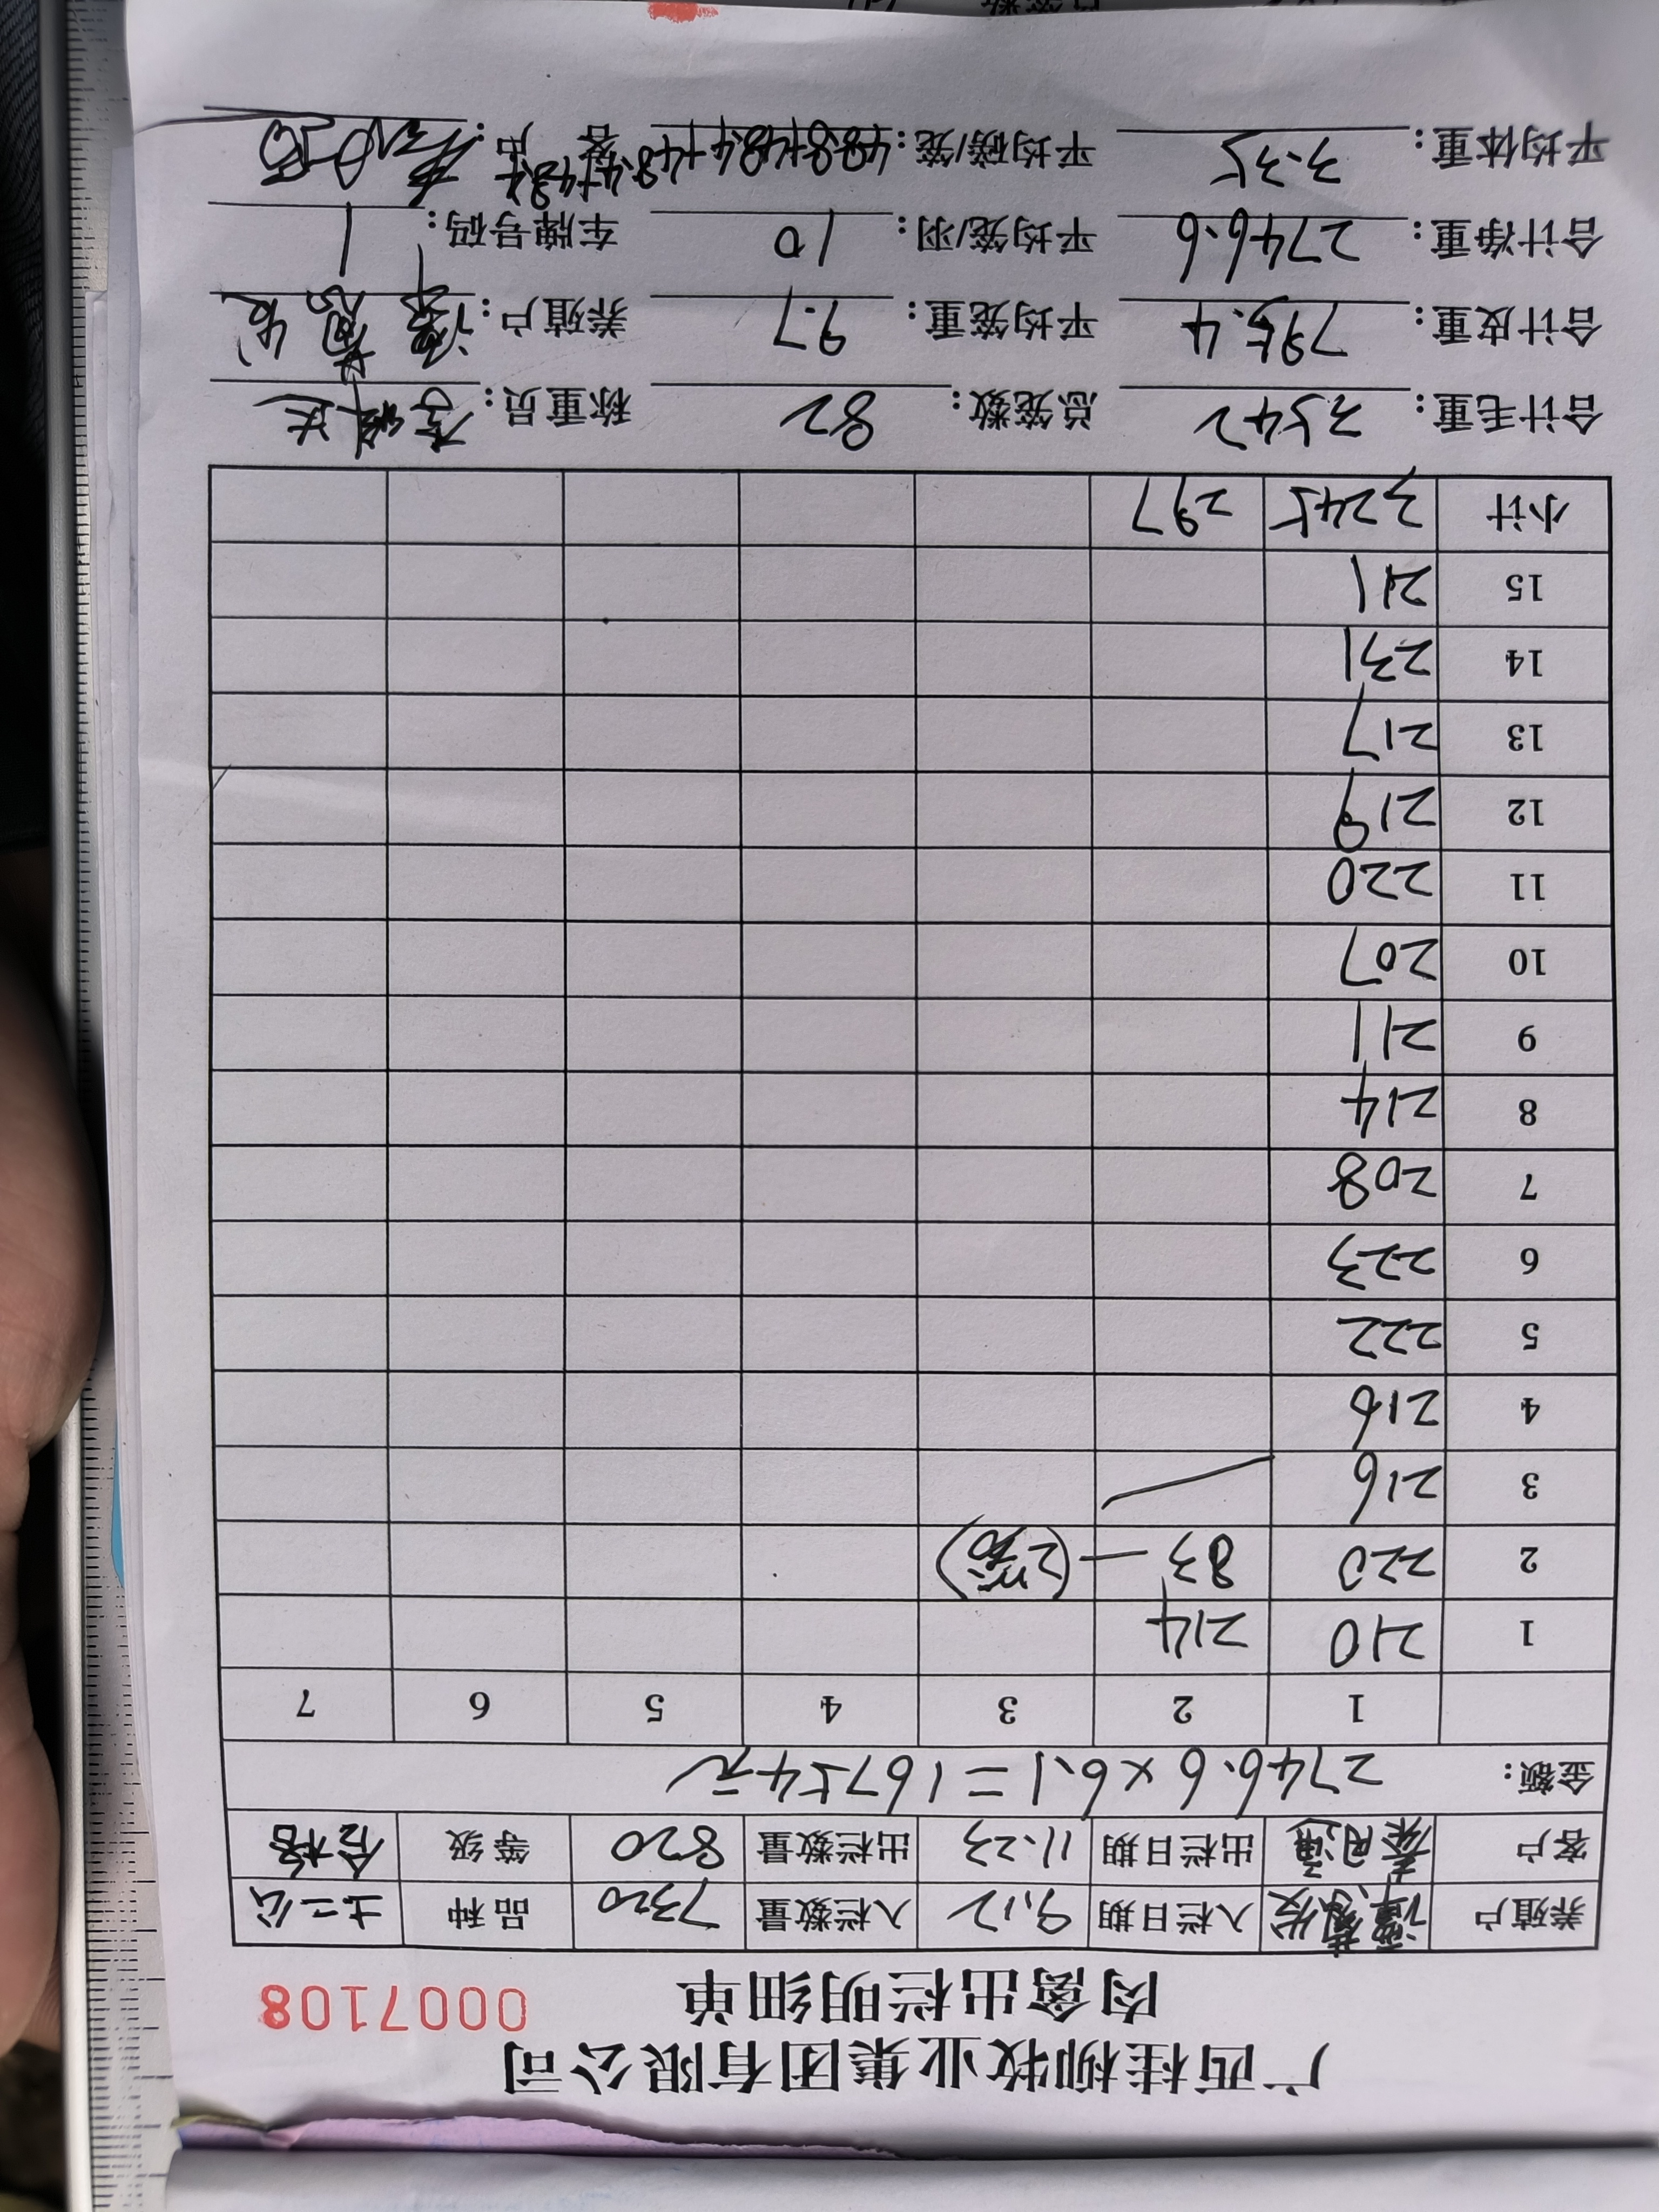 广西桂柳牧业集团有限公司
肉禽出栏明细单 0007108
养殖户 入栏日期 9.12 入栏数量 7320 品种 土二公
客户 出栏日期 11.23 出栏数量 820 等级 合格
金额: 2746.6×6.1=16754元
1 2 3 4 5 6 7
1 210 214
2 220 83 — (2笼)
3 216
4 216
5 222
6 223
7 208
8 214
9 211
10 207
11 220
12 219
13 217
14 231
15 211
小计 3245 297
合计毛重: 3542 总笼数: 82 称重员:
合计皮重: 795.4 平均笼重: 9.7 养殖户:
合计净重: 2746.6 平均笼/羽: 10 车牌号码: 1
平均体重: 3.35 平均磅/笼: 48.8+48.4+48.4+48.4 客户: